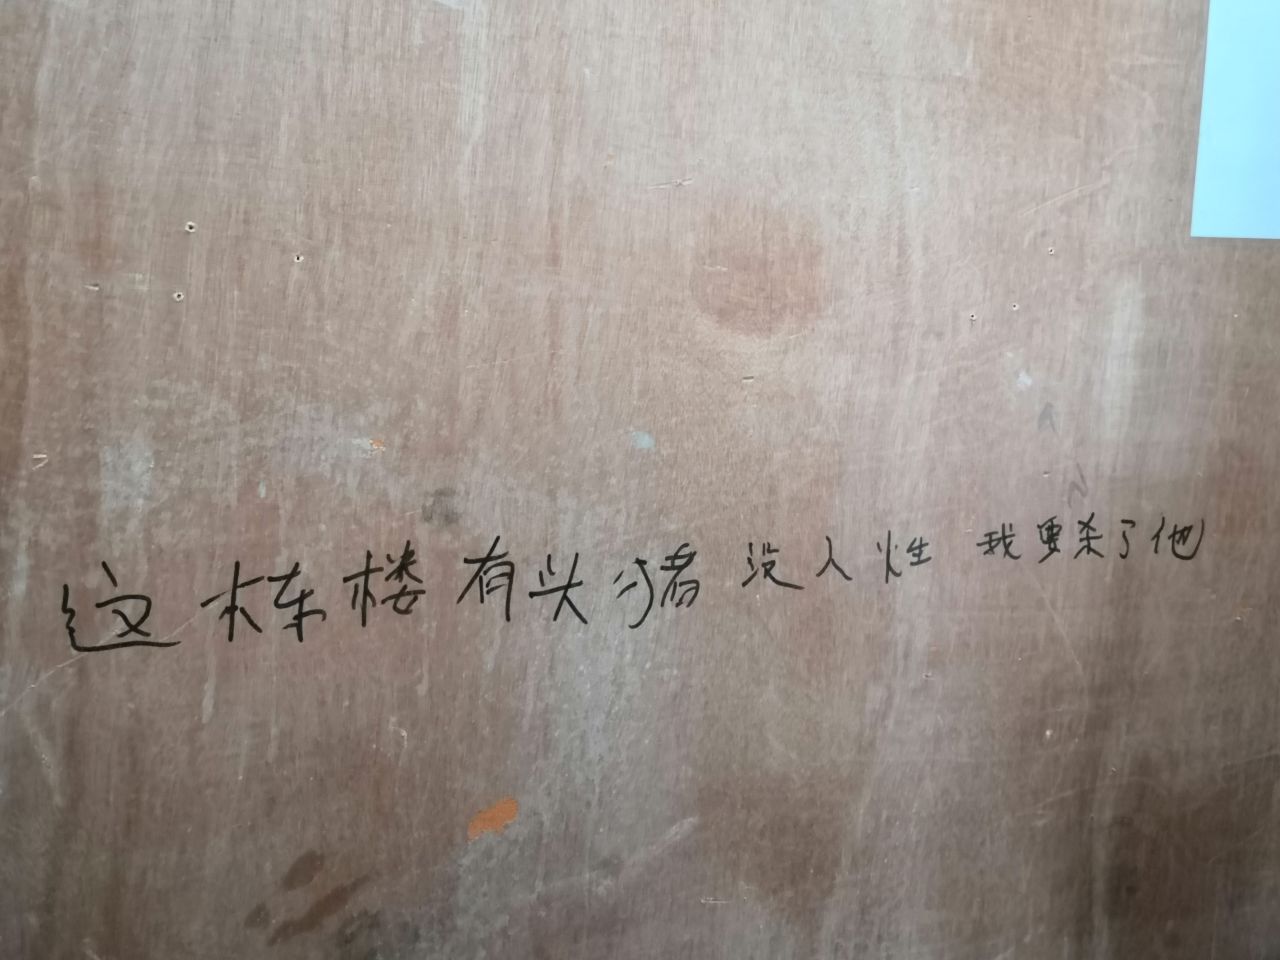 这栋楼有头猪 没人性 我要杀了他